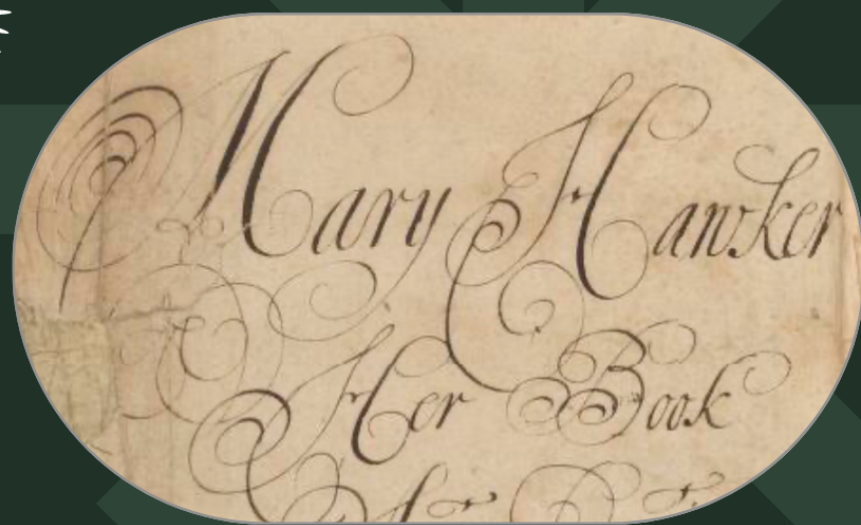 Mary Hawker
Her Book